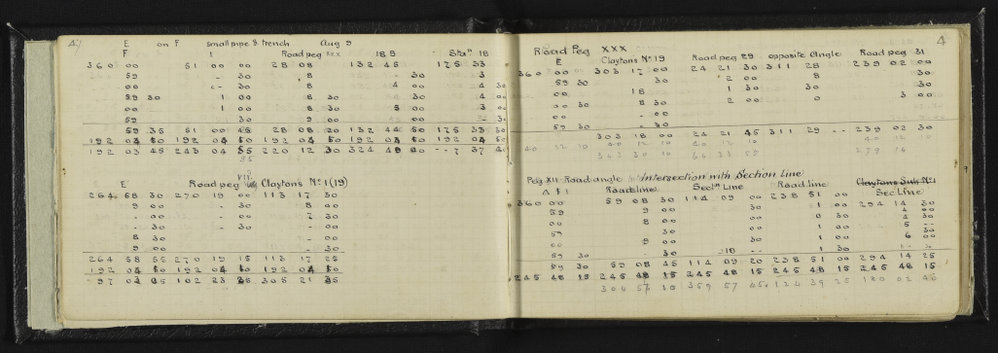 E on F small pipe & trench Aug 9
F 1 Road peg xxx 18 9 Stan 18
360 00 51 00 00 28 08 132 45 175 33
59 - 30 8 - 30 3
00 - 30 8 4 00 4 30
59 30 1 00 8 30 30 4 00
00 1 00 8 30 5 00 3 00
59 30 9 00 30
59 35 51 00 45 28 08 20 132 44 50 175 33 30
192 04 50 192 04 50 192 04 50 192 04 50 192 04 50
192 03 45 243 04 55 220 12 30 324 49 00 - - 7 37 40
E Road peg VII Claytons No 1 (19)
264 58 30 270 19 00 113 17 30
- 00 - 30 8 00
- 00 - 00 7 30
- 30 - 30 - 00
8 30 - 00
9 00 - 30
264 58 55 270 19 15 113 17 25
192 04 50 192 04 50 192 04 50
4
Road Peg XXX
E Claytons No 19 Road peg 29 opposite Angle Road peg 31
360 00 303 17 00 24 21 30 311 28 239 02 00
59 30 30 2 00 8 30
00 18 1 30 30 30
00 30 8 30 2 00 3 00
59 30 - 30
303 18 00 24 21 45 311 29 - - 239 02 30
40 12 10 40 12 10 40 12 10
343 30 10 64 33 55 279 14
Peg XII Road angle Intersection with Section Line
Δ $ 1 Road line Sectn Line Road line Claytons Sub No 1
Sec Line
360 00 59 08 30 114 09 00 238 51 00 294 14 30
59 9 00 30 1 00
00 8 00 00 30 4 30
59 30 00 1 00 5
00 9 00 30 1 00 6 00
59 30 - 30 18 1 30
59 30 59 08 45 114 09 20 238 51 00 294 14 25
245 48 15 245 48 15 245 48 15 245 48 15 245 48 15
304 57 10 359 57 45 124 39 25 180 02 40